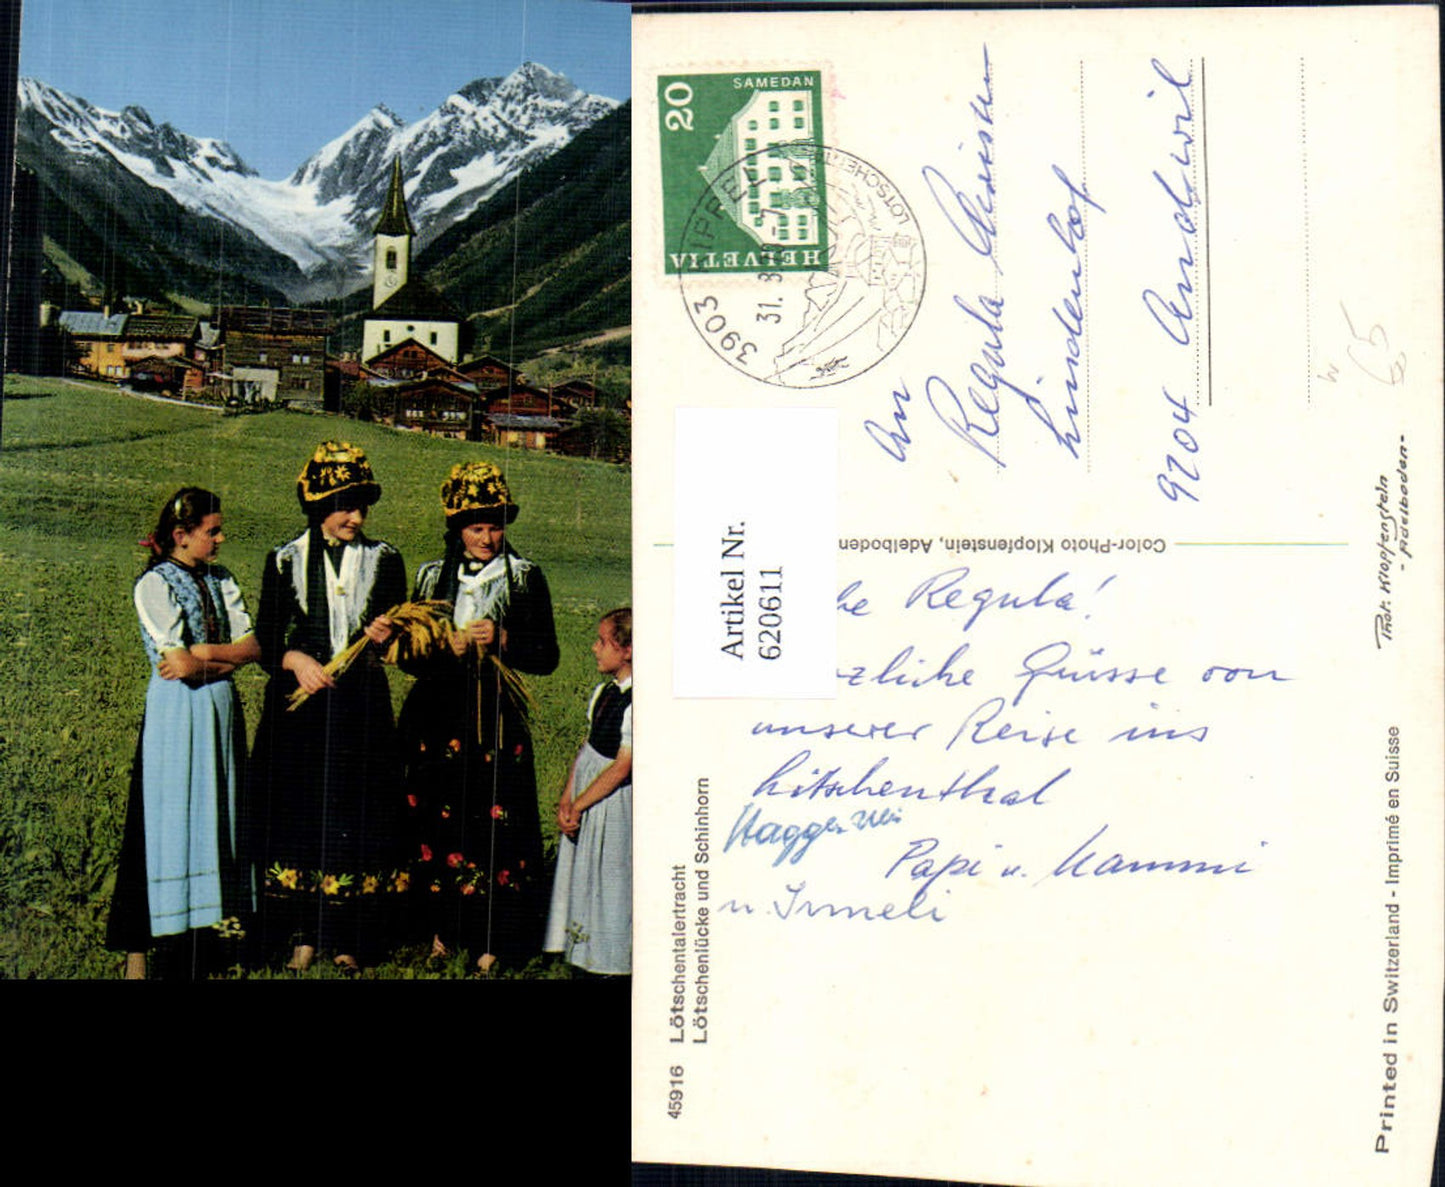 SAMEDAN
20
HELVETIA
3903 KIPPEL
31. 8.
LÖTSCHENTAL
An
Regula Christen
Lindenhof
9204 Andwil
65
Color-Photo Klopfenstein, Adelboden
Phot. Klopfenstein
- Adelboden -
Artikel Nr.
620611
he Regula!
zliche Grüsse von
unserer Reise ins
Lötschenthal
Papi u. Mammi
u. Irmeli
45916 Lötschentalertracht
Lötschenlücke und Schinhorn
Printed in Switzerland - Imprimé en Suisse